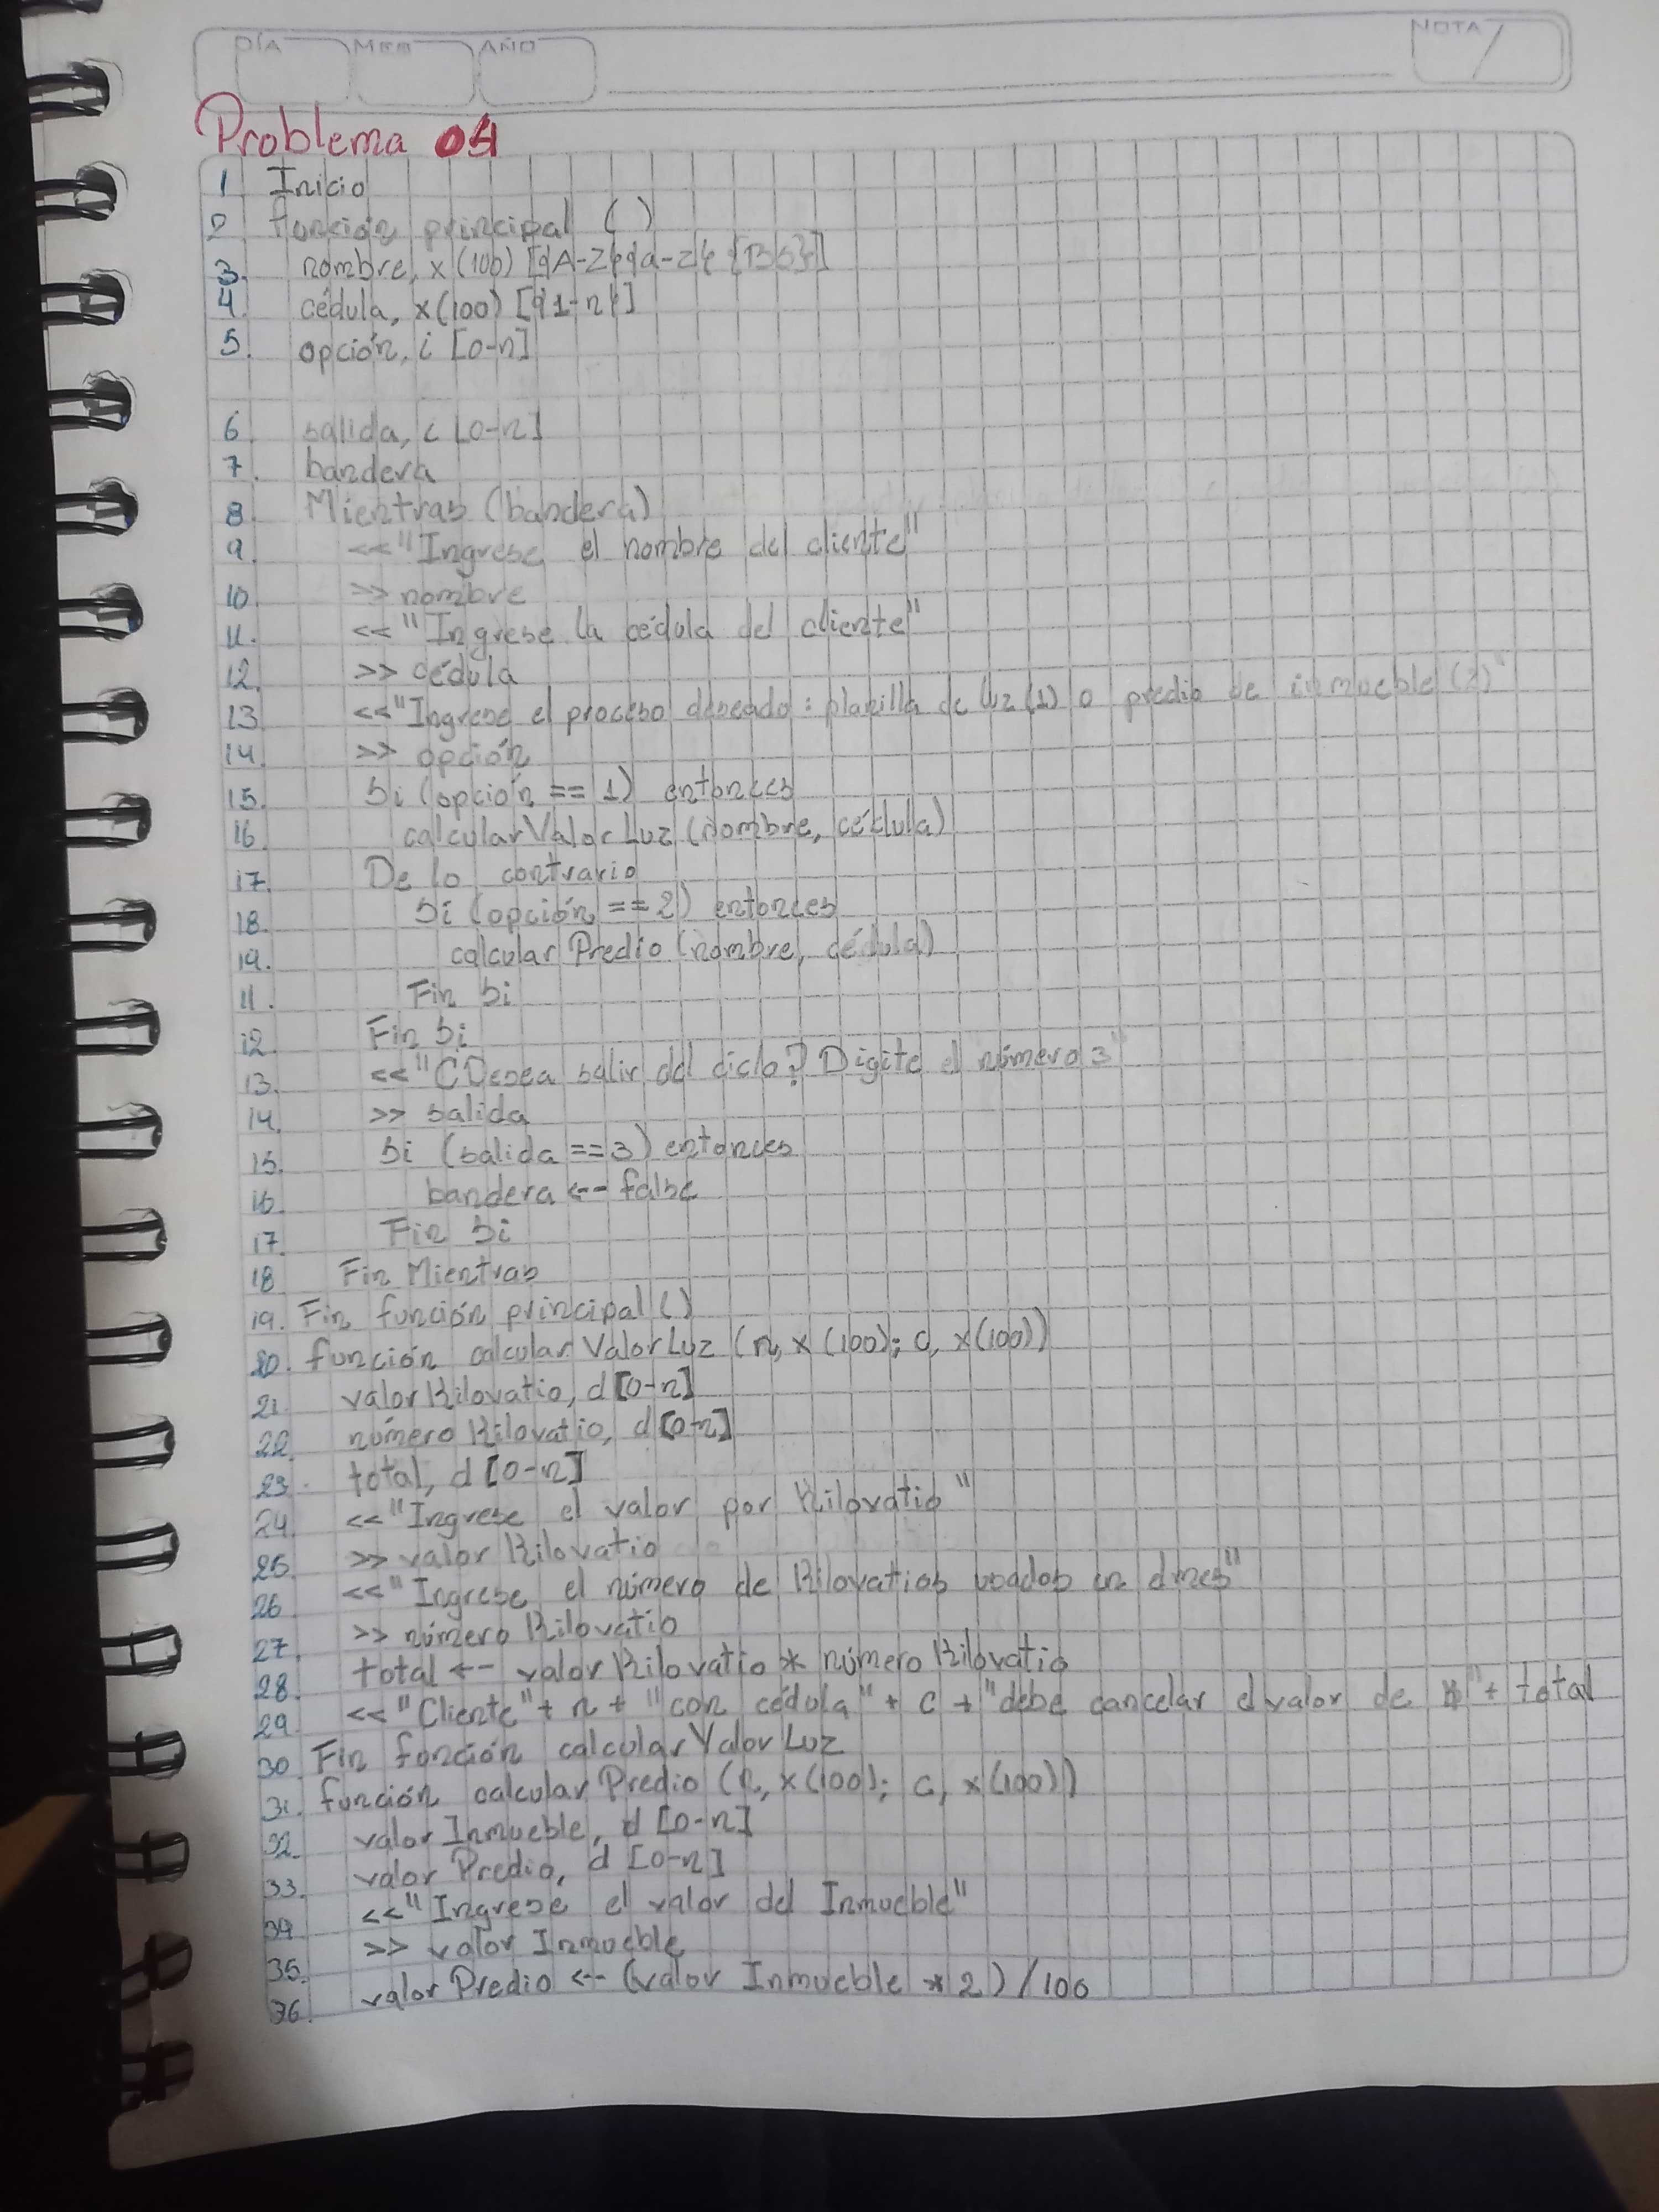 DÍA MES AÑO NOTA
Problema 04
1 Inicio
2 función principal ( )
3. nombre, x (100) [{A-Z}{a-z} {BS}]
4. cédula, x(100) [{1-n}]
5. opción, i [0-n]
6. salida, i [0-n]
7. bandera
8. Mientras (bandera)
9. << "Ingrese el nombre del cliente"
10. >> nombre
11. << "Ingrese la cédula del cliente"
12. >> cédula
13 <<"Ingrese el proceso deseado: planilla de luz (1) o predio de inmueble (2)"
14. >> opción
15. Si (opción == 1) entonces
16 calcularValorLuz (nombre, cédula)
17. De lo contrario
18. Si (opción == 2) entonces
19. calcular Predio (nombre, cédula)
11. Fin Si
12. Fin Si
13. << "¿Desea salir del ciclo? Digite el número 3"
14. >> salida
15. Si (salida == 3) entonces
16 bandera <-- false
17. Fin Si
18 Fin Mientras
19. Fin función principal ( )
20. función calcular ValorLuz (n, x (100); c, x (100))
21 valor Kilovatio, d [0-n]
22. número Kilovatio, d [0-n]
23. total, d [0-n]
24. << "Ingrese el valor por Kilovatio"
25. >> valor Kilovatio
26 << "Ingrese el número de Kilovatios usados en el mes"
27. >> número Kilovatio
28. total <-- valor Kilovatio * número Kilovatio
29. << "Cliente" + n + "con cédula" + c + "debe cancelar el valor de $" + total
30 Fin función calcular Valor Luz
31. función calcular Predio (n, x (100); c, x (100))
32. valor Inmueble, d [0-n]
33. valor Predio, d [0-n]
34 << "Ingrese el valor del Inmueble"
35. >> valor Inmueble
36. valor Predio <-- (valor Inmueble * 2) / 100